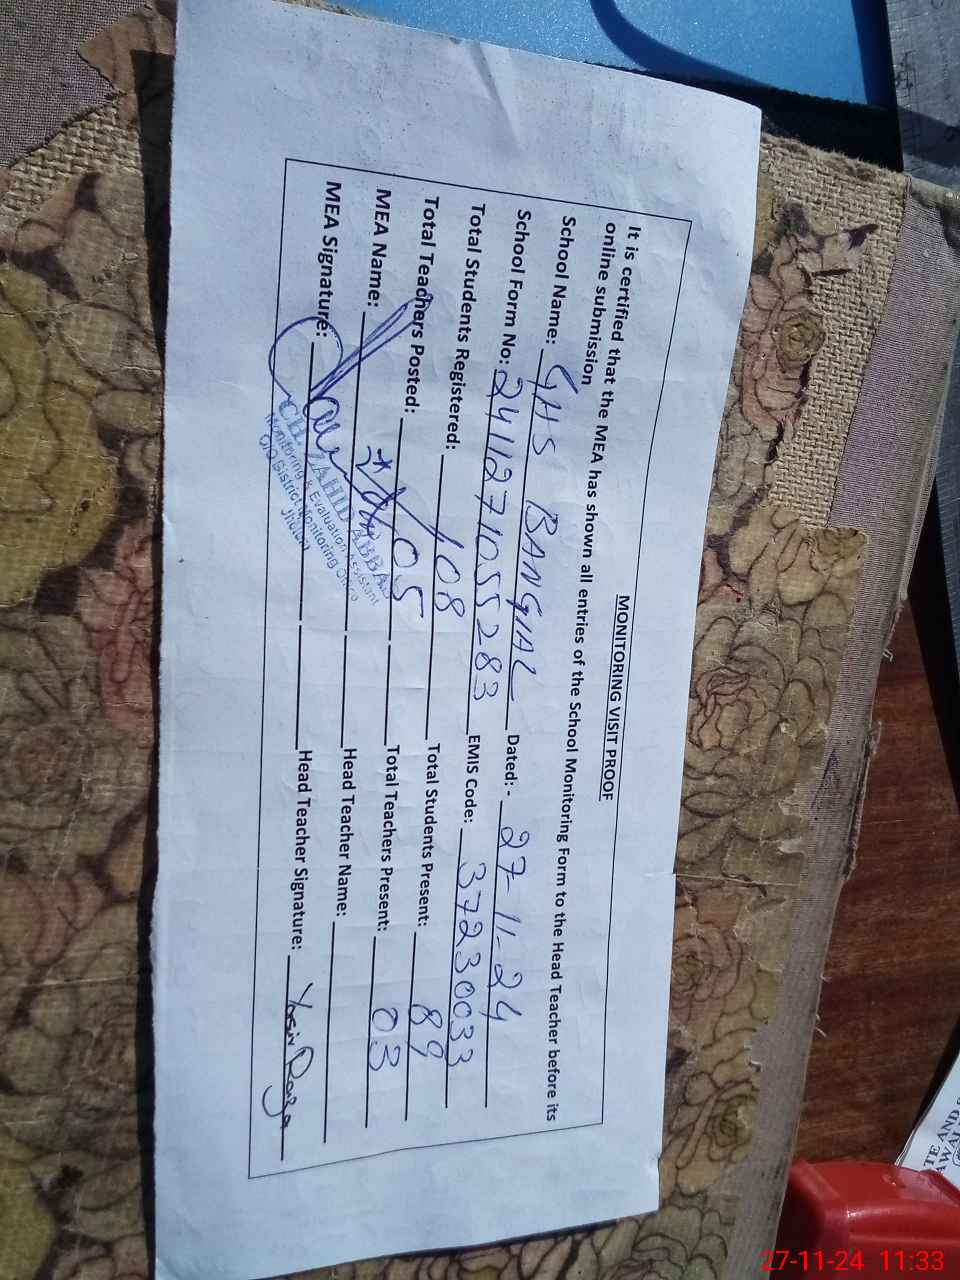 MONITORING VISIT PROOF
It is certified that the MEA has shown all entries of the School Monitoring Form to the Head Teacher before its
online submission
School Name: GHS BANGIAL Dated:- 27-11-24
School Form No: 24112271055283 EMIS Code: 37230033
Total Students Registered: 108 Total Students Present: 89
Total Teachers Posted: 05 Total Teachers Present: 03
MEA Name: Head Teacher Name:
MEA Signature: Head Teacher Signature: Yasir Raza
CH. ZAHID ABBAS
Monitoring & Evaluation Assistant
O/O District Monitoring Office
Jhelum
TE AND
27-11-24 11:33